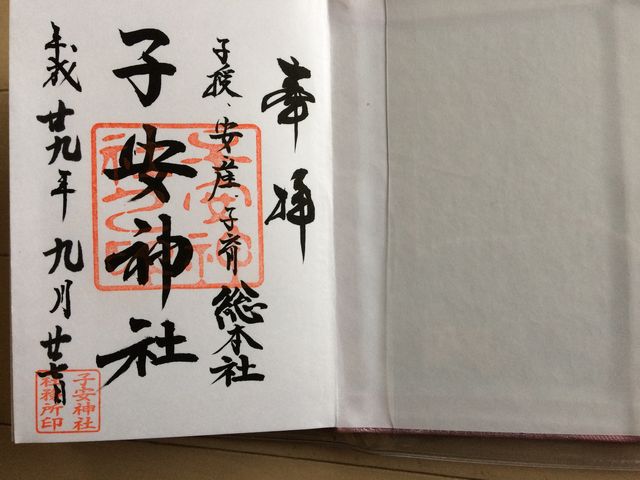 奉拝
子授・安産・子育 総本社
子安神社
平成廿九年 九月廿七日
子安神社
社務所印